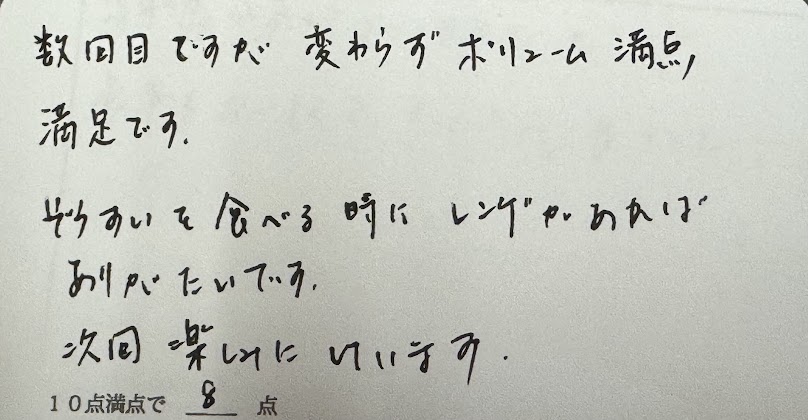 数回目ですが 変わらず ボリューム 満点,
満足です.
ぞうすいを 食べる 時に レンゲが あれば
ありがたいです.
次回 楽しみに しています.
10点満点で 8 点